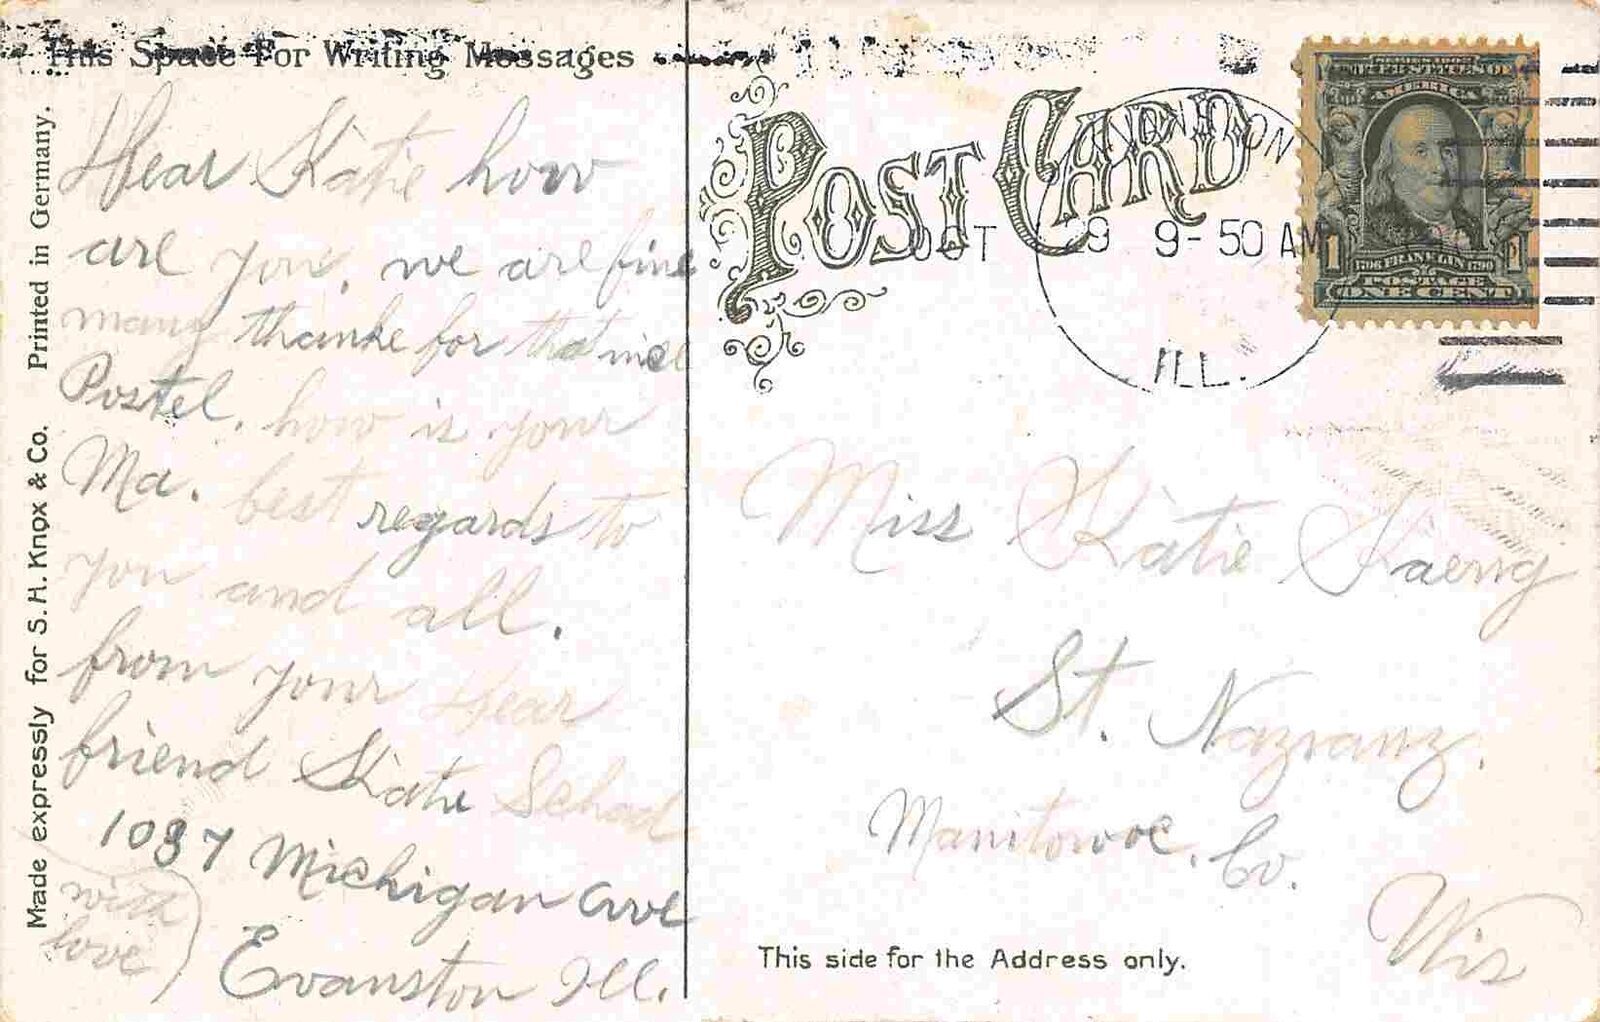 This Space For Writing Messages
Dear Katie how
are you, we are fine
many thanke for that nice
Postel. how is your
Ma. best regards to
you and all.
from your Dear
friend Katie Schad
1037 Michigan Ave
Evanston Ill.
with
love
Made expressly for S.H. Knox & Co. Printed in Germany.
POST CARD
ON
OCT 29 9-50 AM
ILL.
UNITED STATES OF
AMERICA
1 1
1706 FRANKLIN 1790
POSTAGE
ONE CENT
Miss Katie
St. Nazranz.
Manitowoc. Co.
Wis
This side for the Address only.